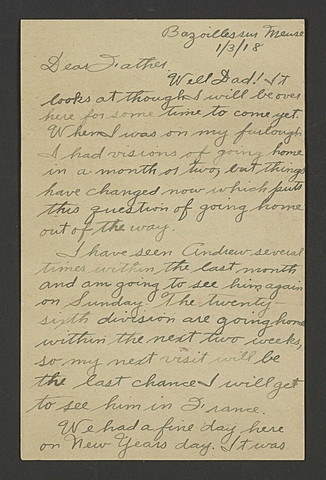 Bazoilles sur Meuse
1/3/18
Dear Father,
Well Dad! It
looks at though I will be over
here for some time to come yet.
When I was on my furlough
I had visions of going home
in a month or two, but things
have changed now which puts
this question of going home
out of the way.
I have seen Andrew several
times within the last month
and am going to see him again
on Sunday. The twenty-
sixth division are going home
within the next two weeks,
so my next visit will be
the last chance I will get
to see him in France.
We had a fine day here
on New Years day. It was